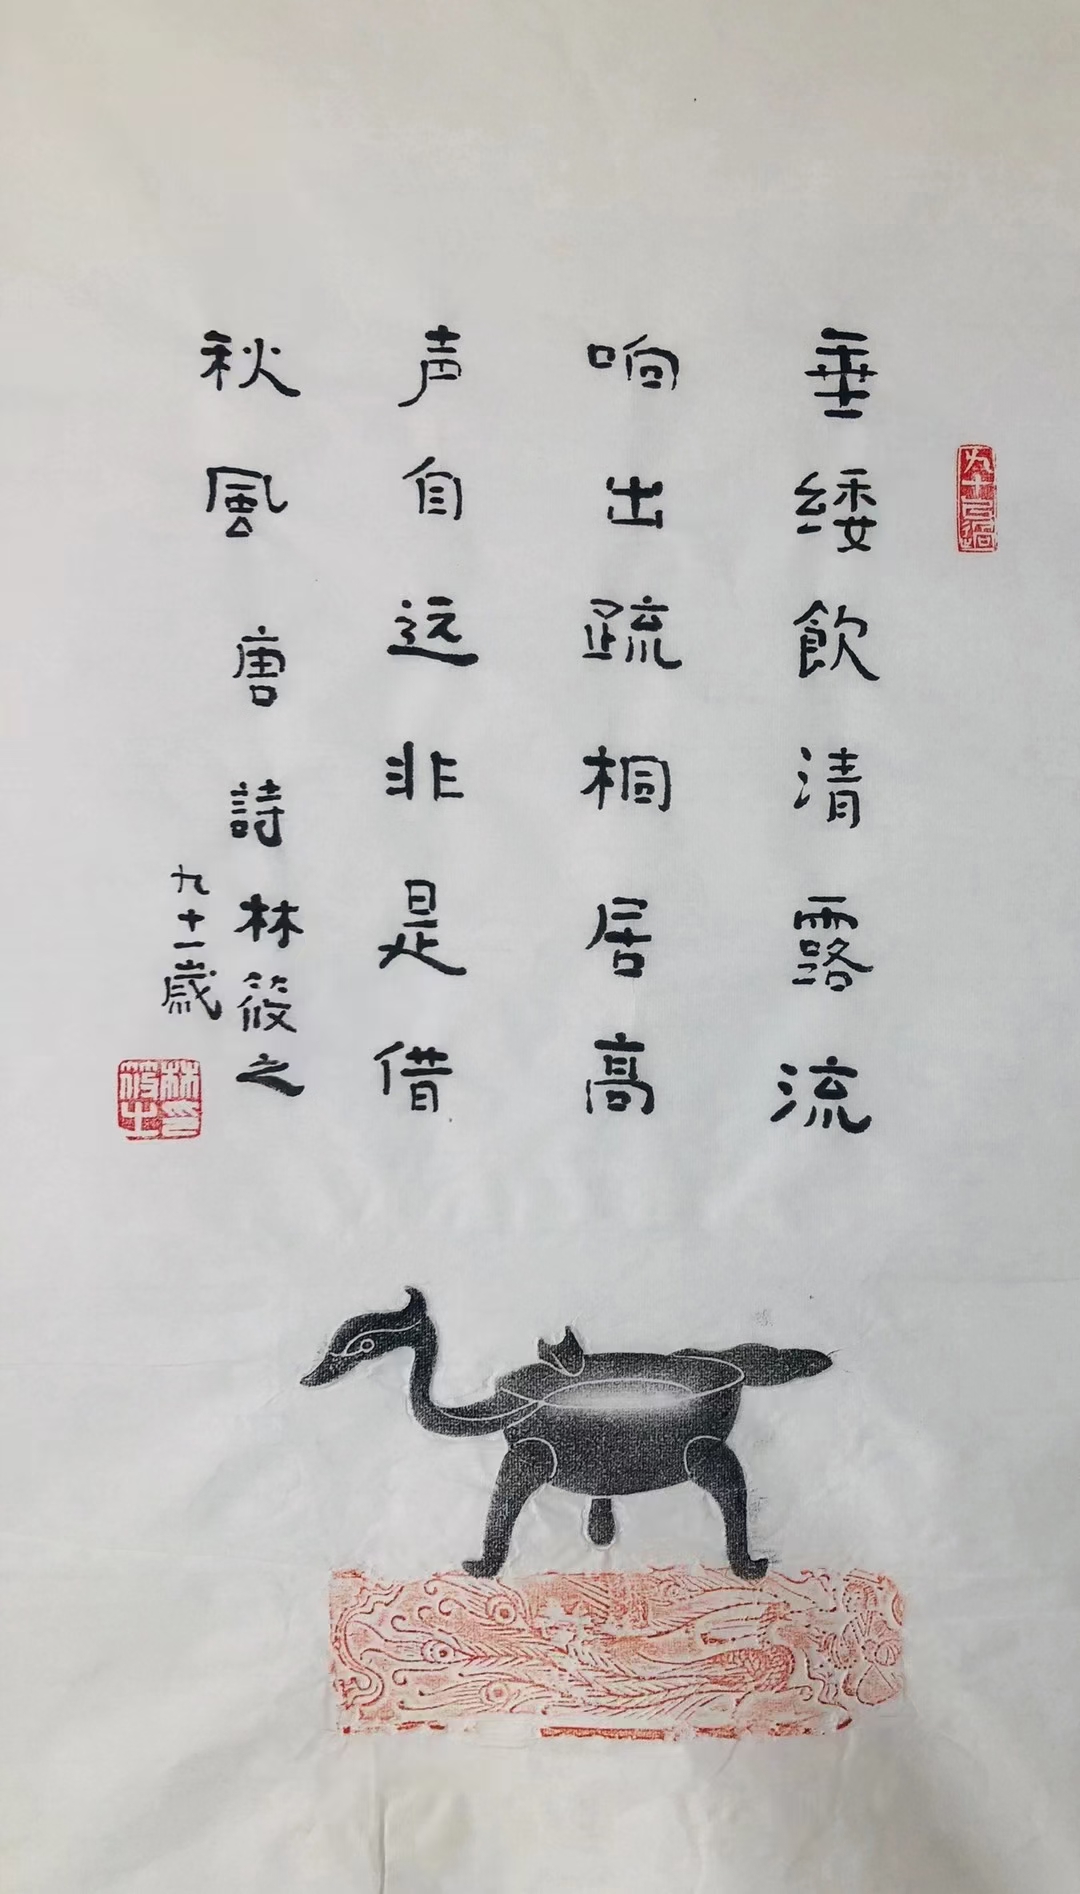 垂緌飲清露流
响出疏桐居高
声自远非是借
秋風 唐詩 林筱之
九十一歲
林筱之印